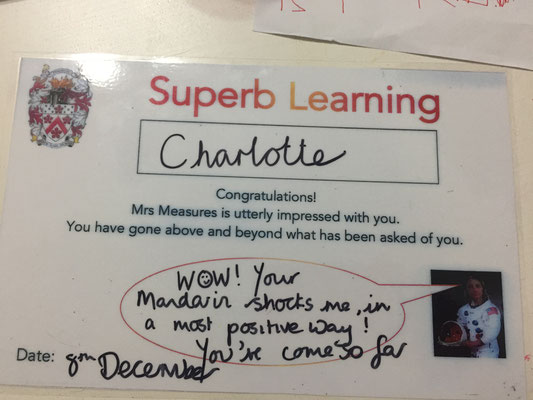 Superb Learning
Charlotte
Congratulations!
Mrs Measures is utterly impressed with you.
You have gone above and beyond what has been asked of you.
WOW! Your
Mandarin shocks me, in
a most positive way!
You're come so far
Date: 8th December